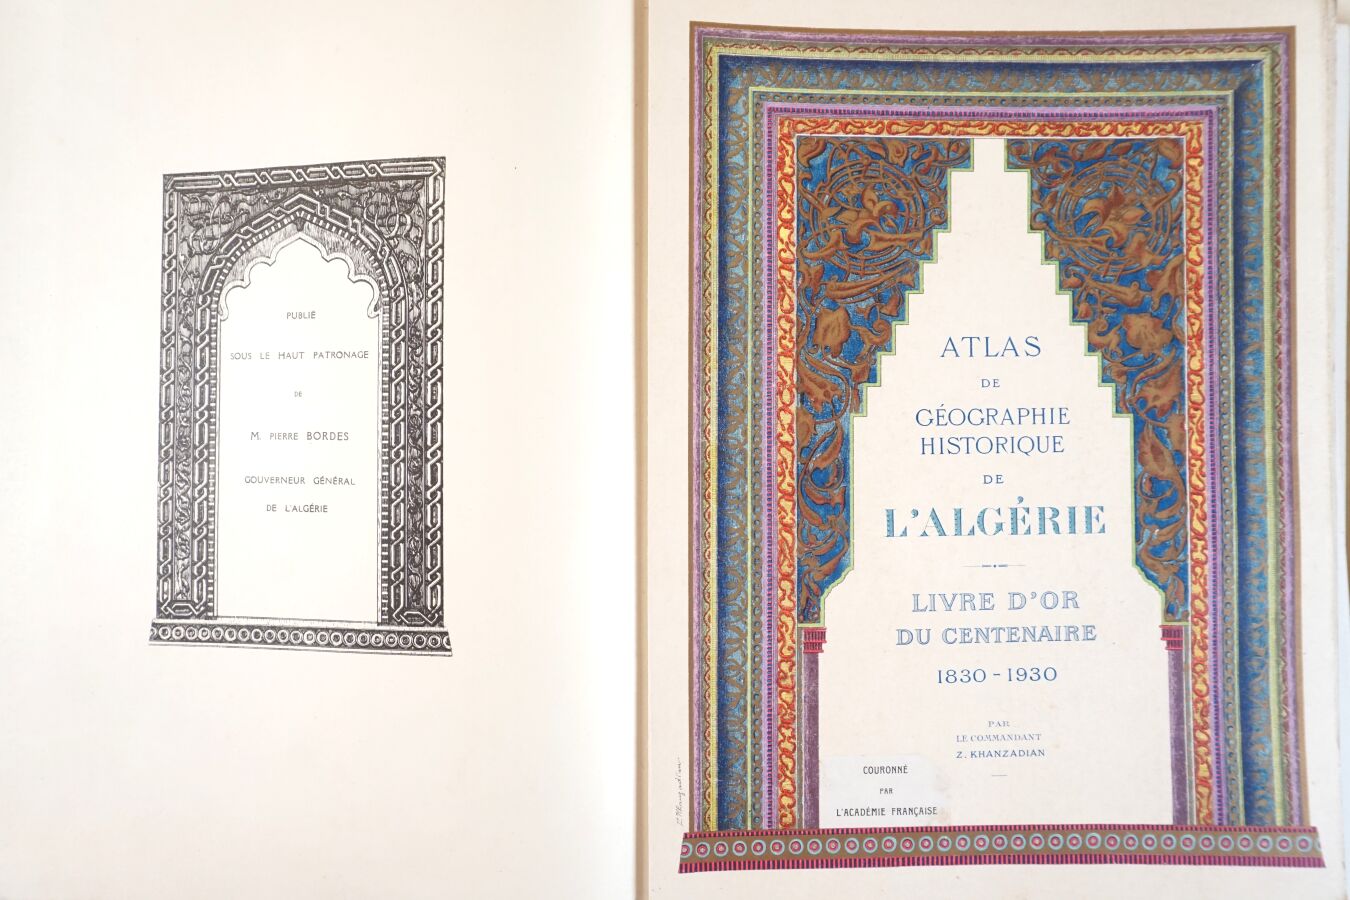 PUBLIÉ
SOUS LE HAUT PATRONAGE
DE
M. PIERRE BORDES
GOUVERNEUR GÉNÉRAL
DE L'ALGÉRIE
ATLAS
DE
GÉOGRAPHIE
HISTORIQUE
DE
L'ALGÉRIE
LIVRE D'OR
DU CENTENAIRE
1830-1930
PAR
LE COMMANDANT
Z. KHANZADIAN
COURONNÉ
PAR
L'ACADÉMIE FRANÇAISE